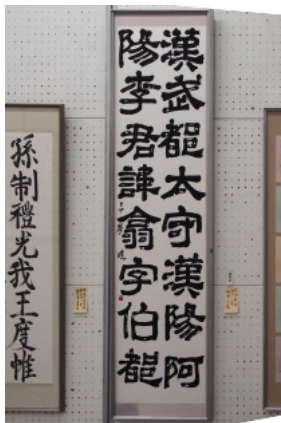 漢武都太守漢陽阿
陽李君諱翕字伯都
孫制禮光我王度惟